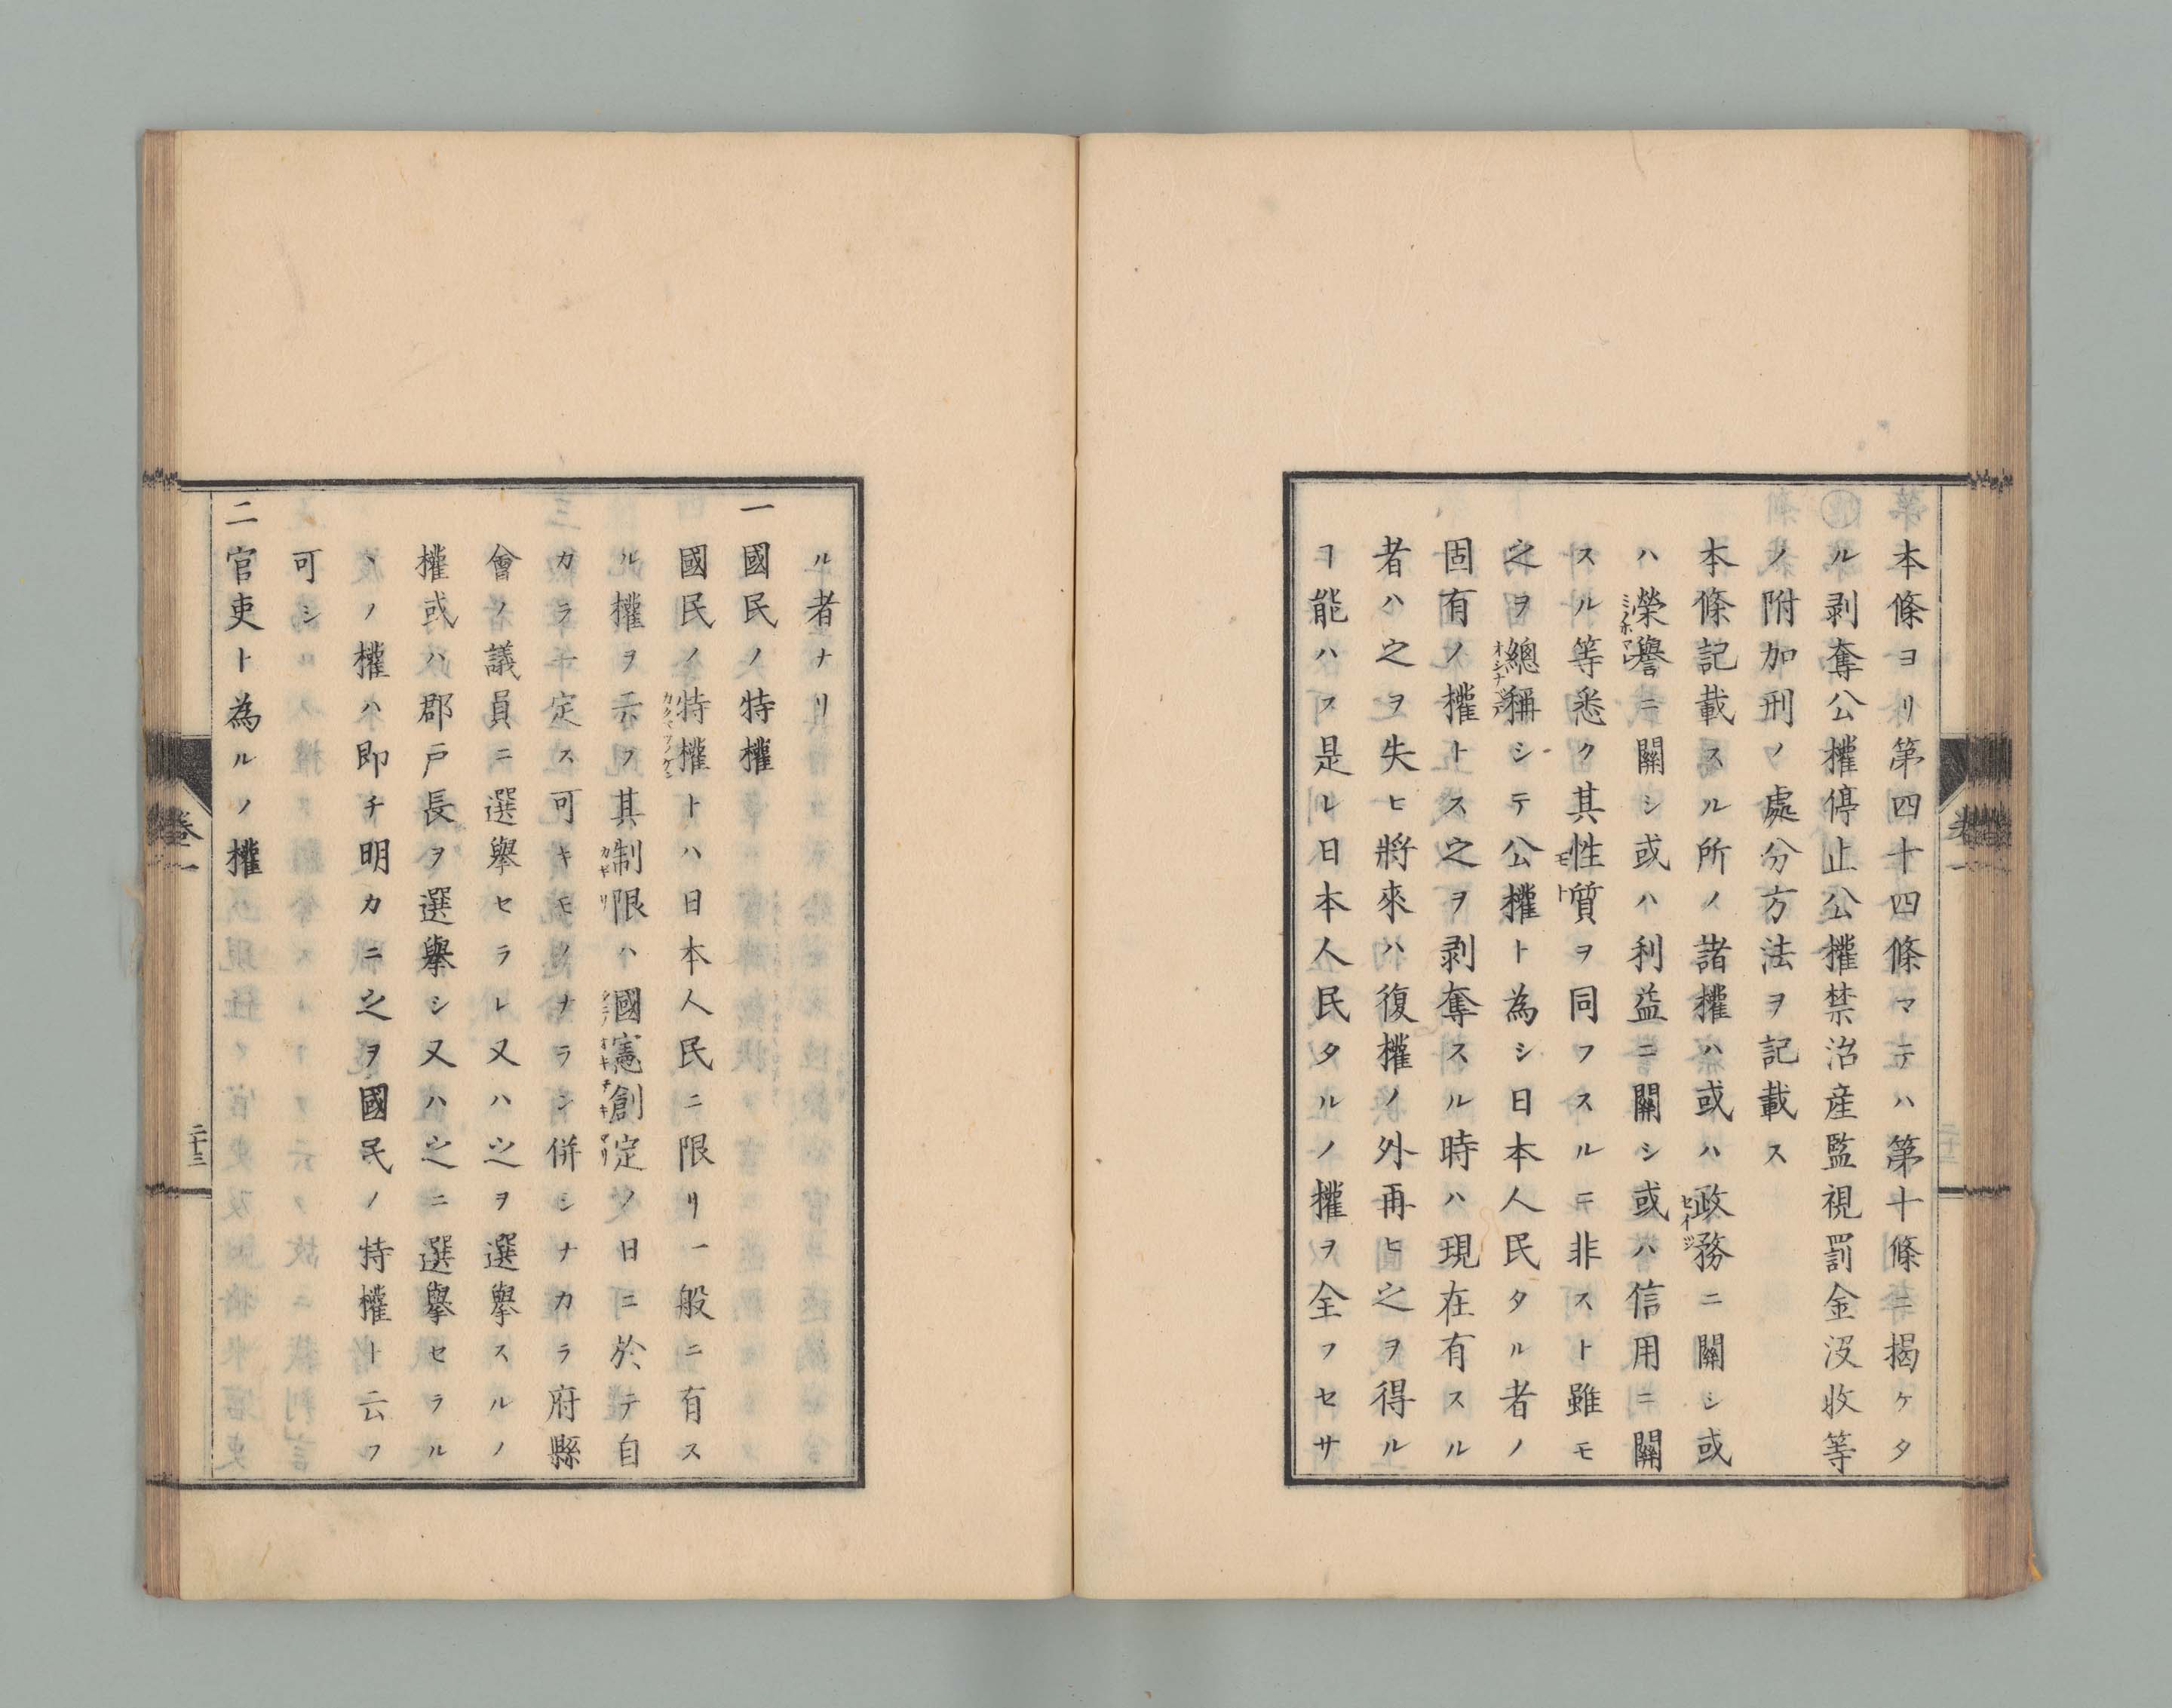 本條ヨリ第四十四條マテハ第十條ニ揭ケタ
ル剥奪公權停止公權禁治産監視罰金沒收等
ノ附加刑ノ處分方法ヲ記載ス
本條記載スル所ノ諸權ハ或ハ政務ニ關シ或
ハ榮譽ニ關シ或ハ利益ニ關シ或ハ信用ニ關
スル等悉ク其性質ヲ同フスルニ非スト雖モ
之ヲ總稱シテ公權ト為シ日本人民タル者ノ
固有ノ權トス之ヲ剥奪スル時ハ現在有スル
者ハ之ヲ失ヒ將來ハ復權ノ外再ヒ之ヲ得ル
ヿ能ハス是レ日本人民タルノ權ヲ全フセサ
ル者ナリ
一國民ノ特權
國民ノ特權トハ日本人民ニ限リ一般ニ有ス
ル權ヲ云フ其制限ハ國憲創定ノ日ニ於テ自
カラ一定ス可キモノナラン併シナカラ府縣
會ノ議員ニ選擧セラレ又ハ之ヲ選擧スルノ
權或ハ郡戸長ヲ選擧シ又ハ之ニ選擧セラル
ヽノ權ハ即チ明カニ之ヲ國民ノ特權ト云フ
可シ
二官吏ト為ルノ權
卷一
二十三